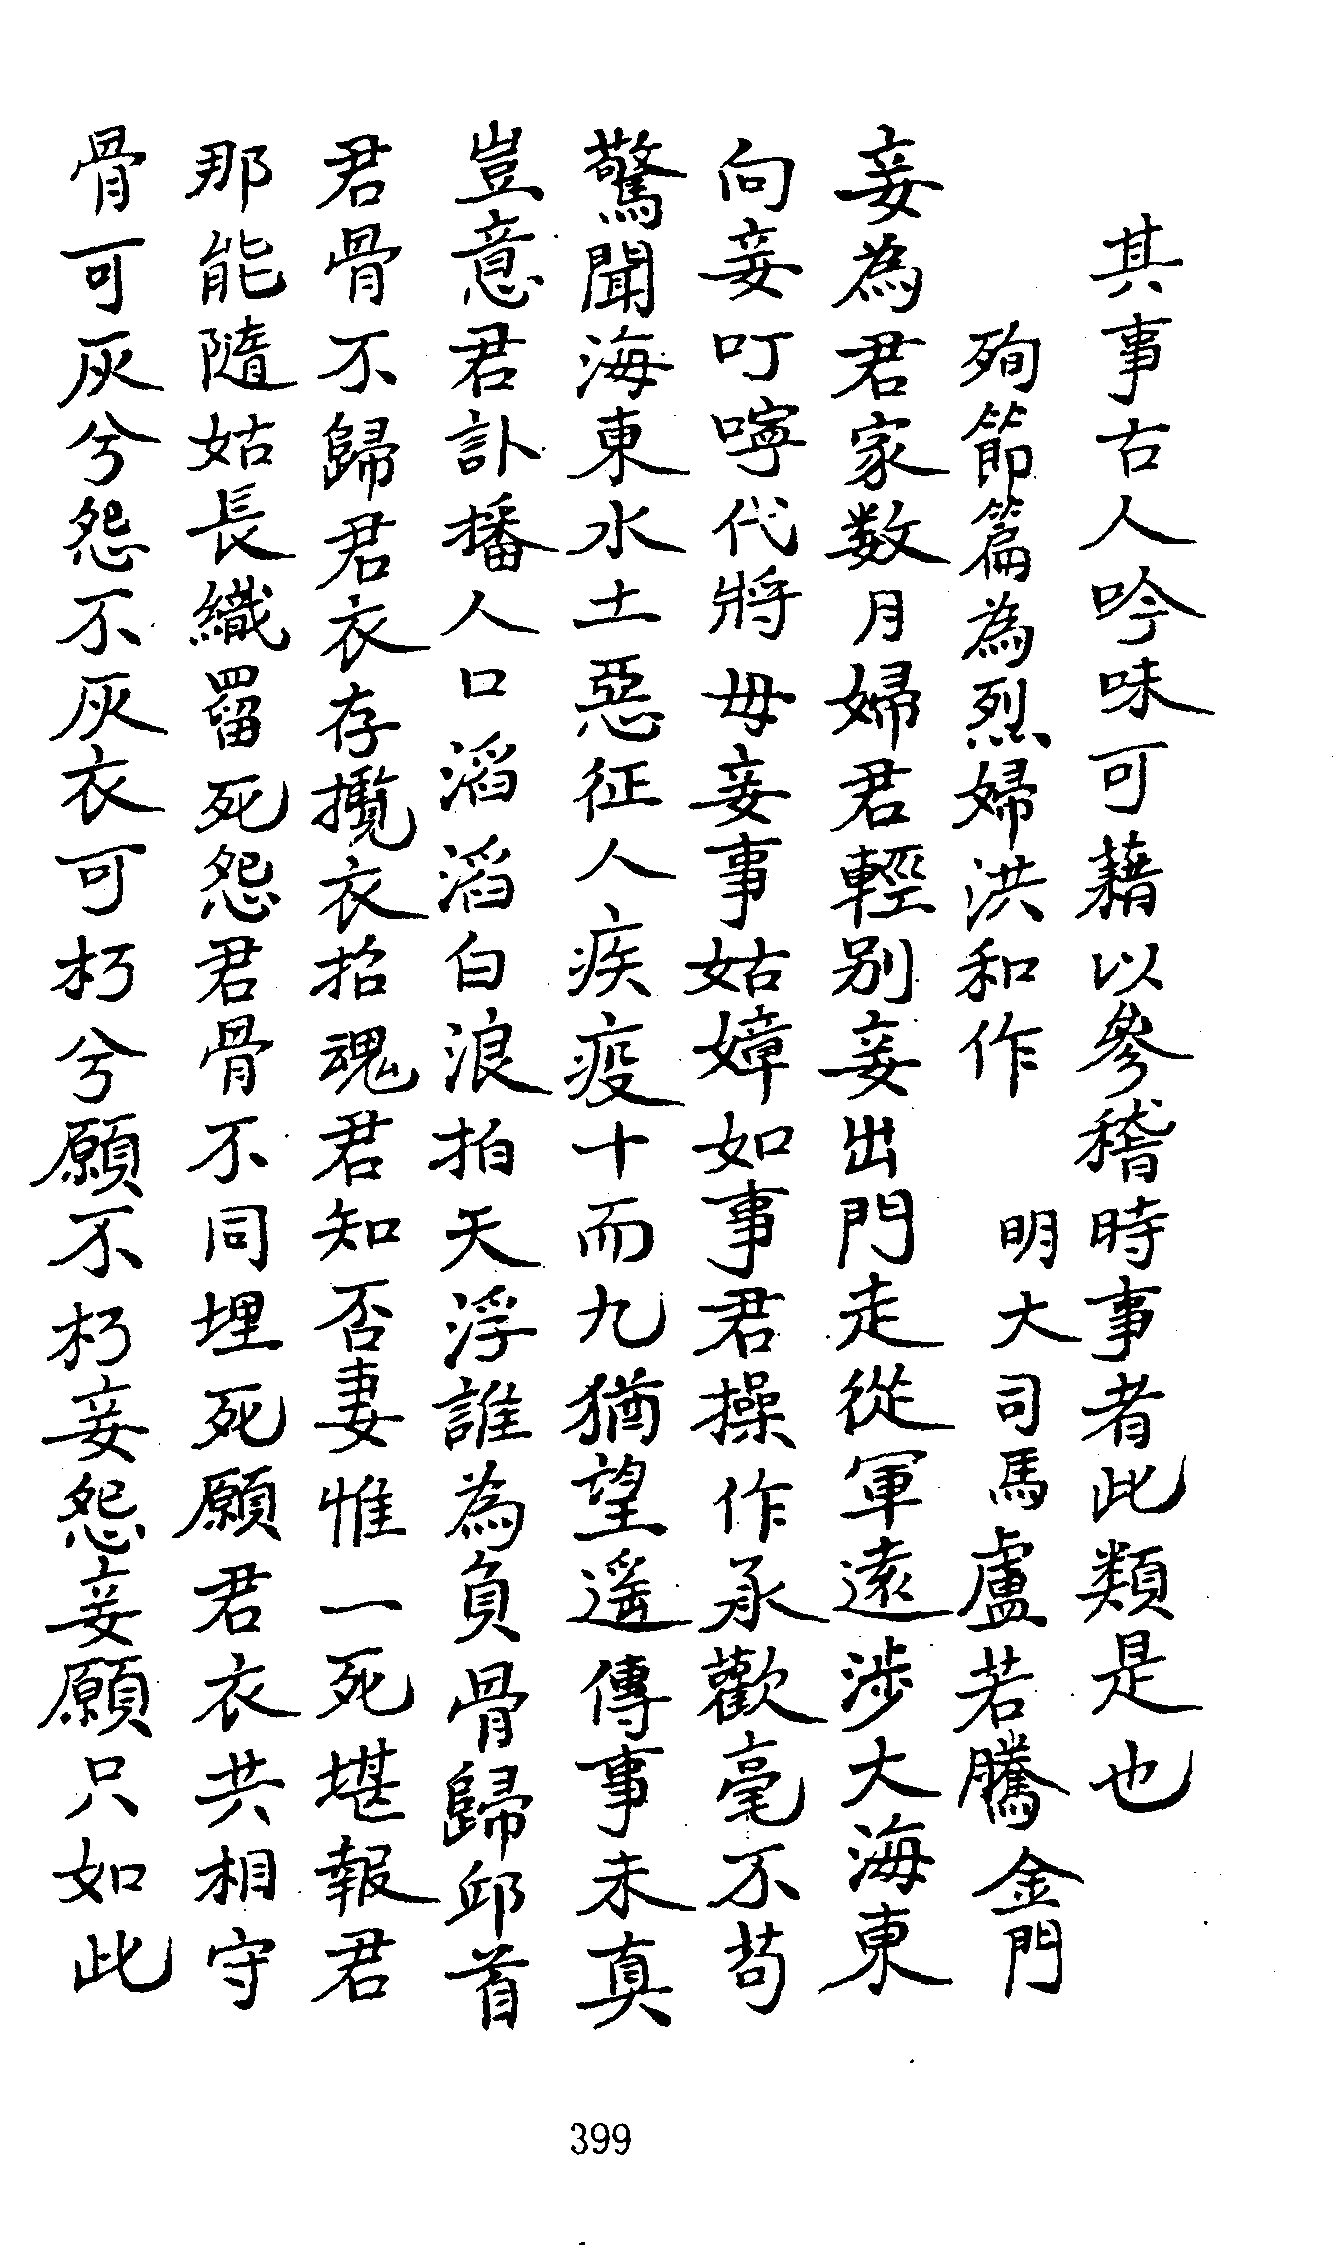 其事古人吟味可藉以參稽時事者此類是也
殉節篇為烈婦洪和作　明大司馬盧若騰金門
妾為君家数月婦君輕別妾出門走從軍遠涉大海東
向妾叮嚀代將母妾事姑嫜如事君操作承歡毫不苟
驚聞海東水土惡征人疾疫十而九猶望遙傳事未真
豈意君訃播人口滔滔白浪拍天浮誰為負骨歸邱首
君骨不歸君衣存攬衣招魂君知否妻惟一死堪報君
那能隨姑長織罶死怨君骨不同埋死願君衣共相守
骨可灰兮怨不灰衣可朽兮願不朽妾怨妾願只如此
399